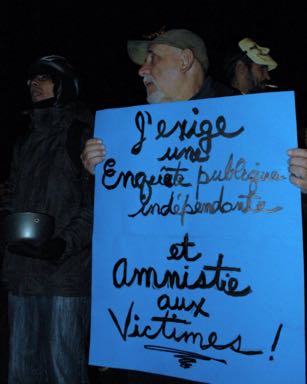 J'exige
une
Enquête publique
indépendante
et
Amnistie
aux
Victimes!